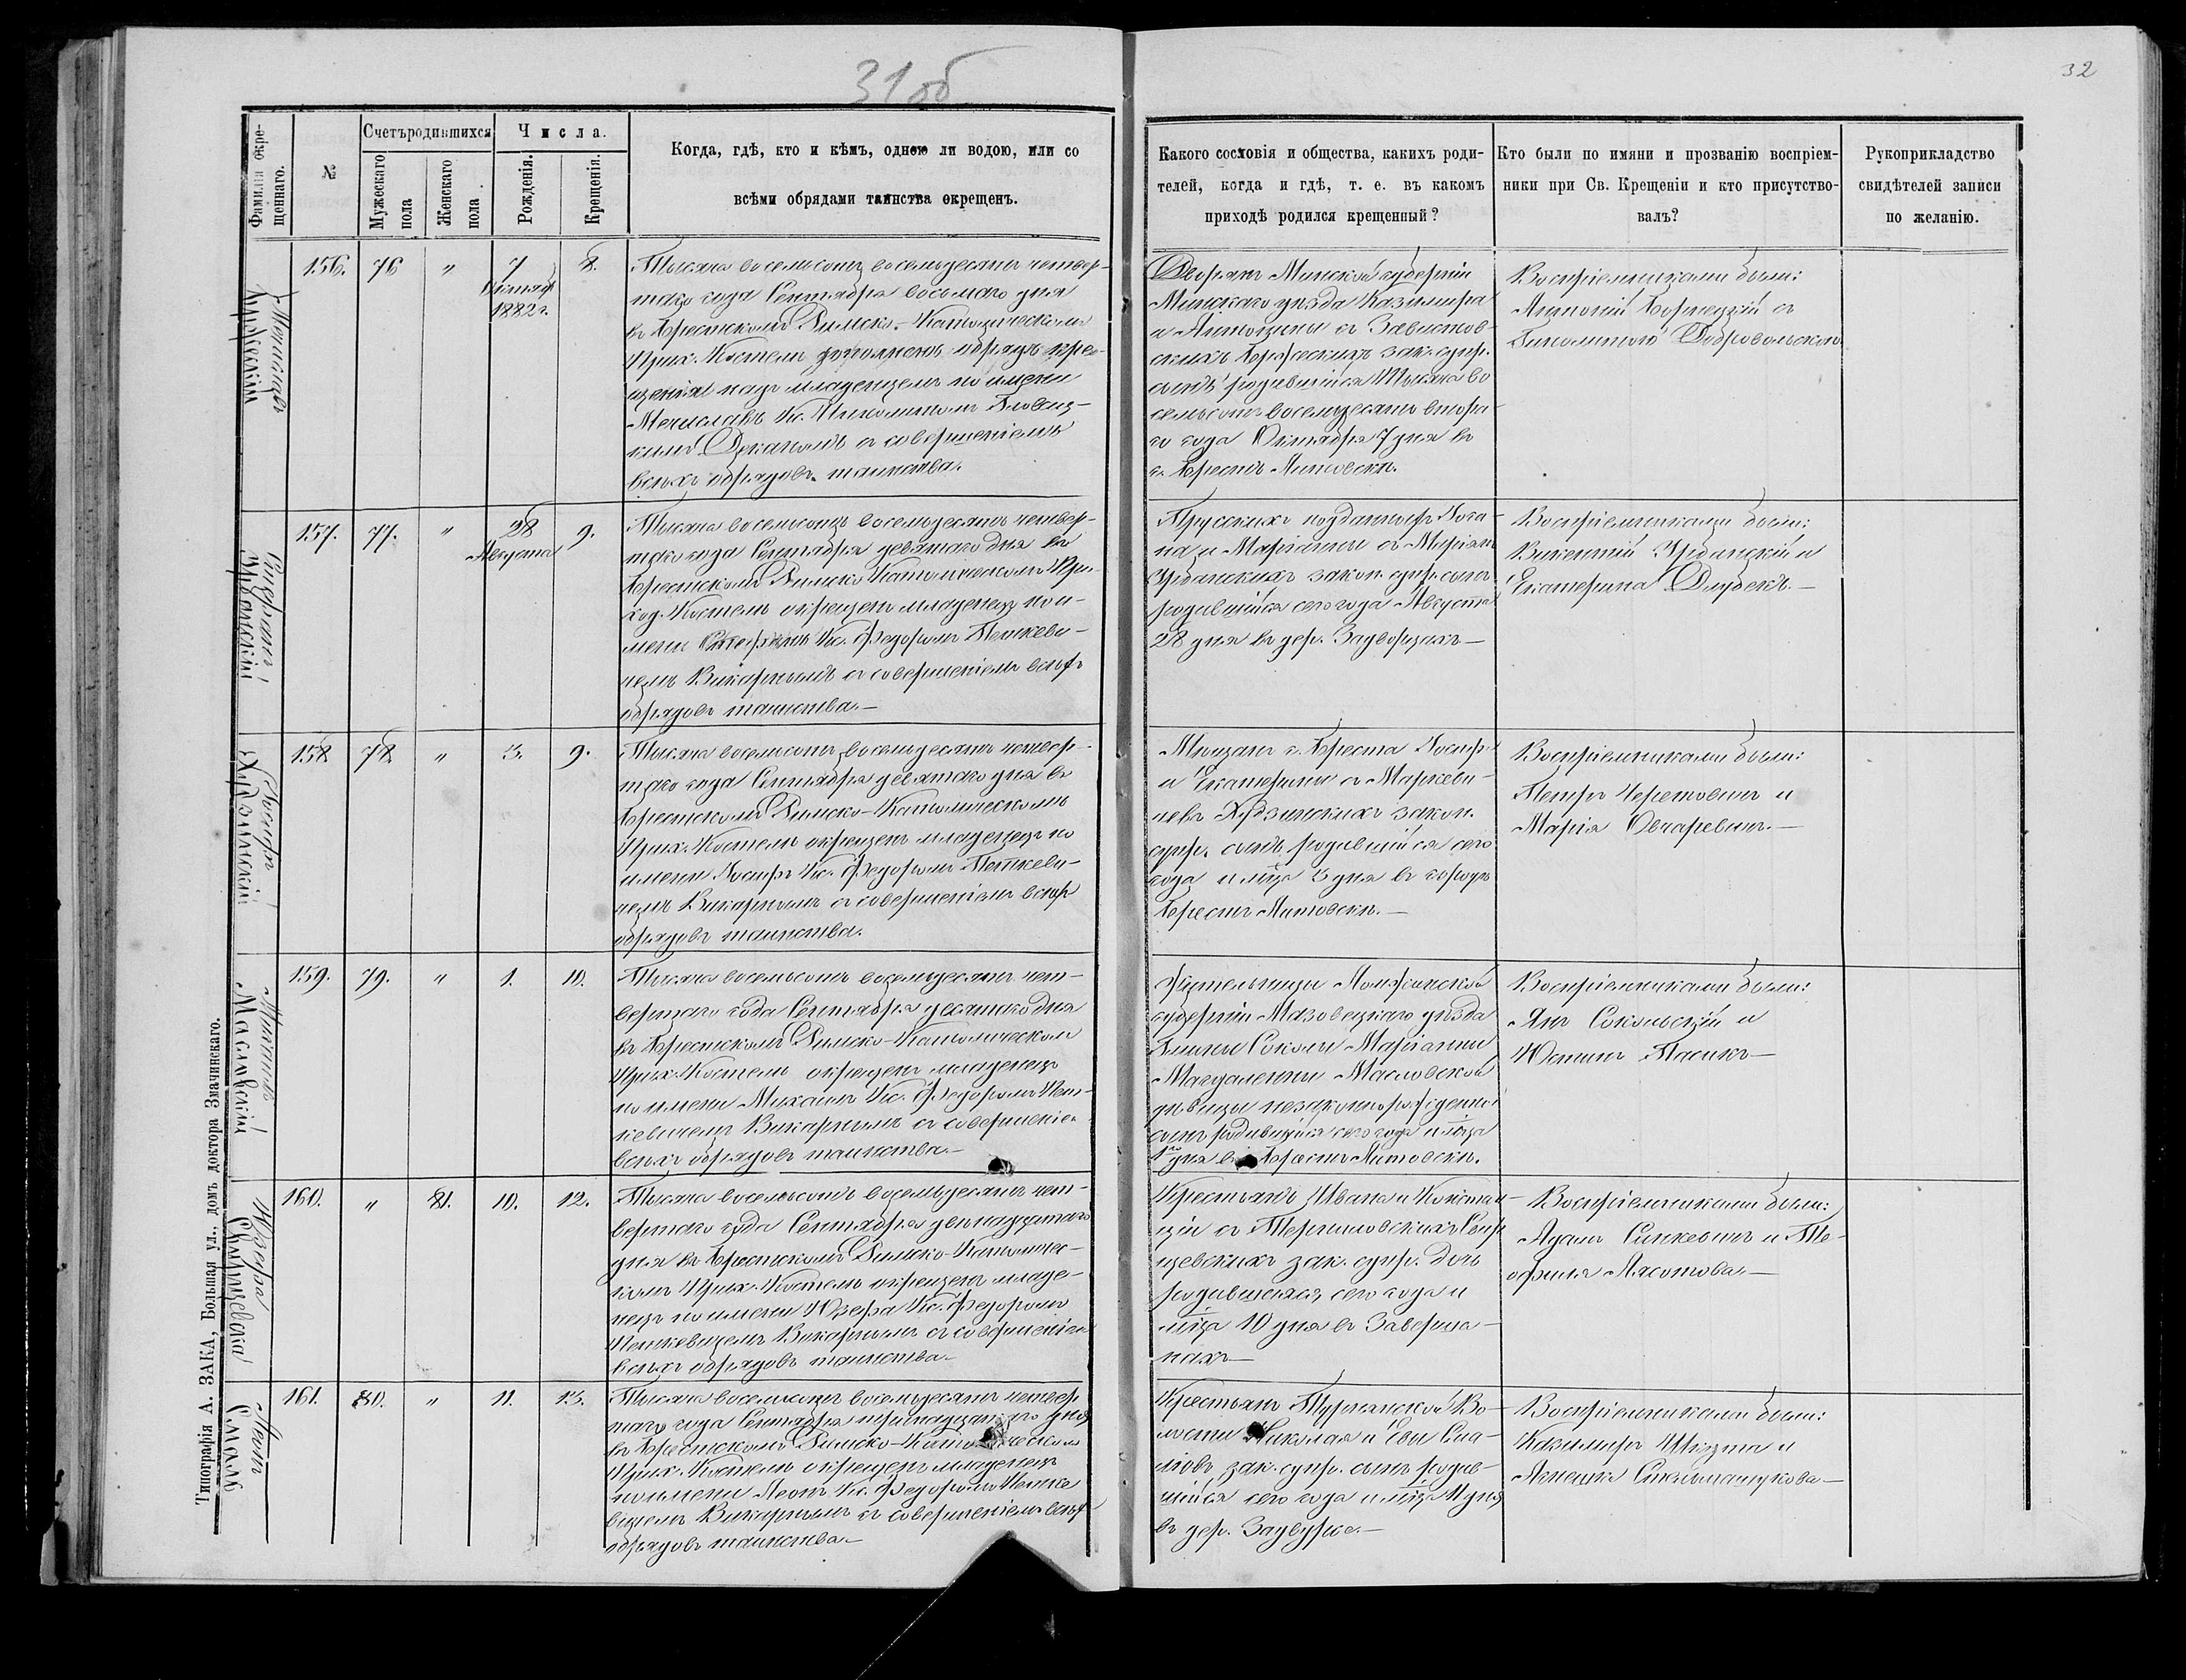 31 об
32
Фамилія окре-
щеннаго.
№
Счетъ родившихся
Мужескаго
пола
Женскаго
пола.
Числа.
Рожденія.
Крещенія.
Когда, гдѣ, кто и кѣмъ, одною ли водою, или со
всѣми обрядами таинства окрещенъ.
Какого сословія и общества, какихъ роди-
телей, когда и гдѣ, т. е. въ какомъ
приходѣ родился крещенный?
Кто были по имяни и прозванію воспріем-
ники при Св. Крещеніи и кто присутство-
валъ?
Рукоприкладство
свидѣтелей записи
по желанію.
Мечиславъ
156. 76 " 7 8.
Октября
1882 г.
Тысяча восемьсотъ восемьдесятъ четвер-
таго года Сентября восьмаго дня
въ Брестскомъ Римско-Католическомъ
Прих. Костелѣ дополненъ обрядъ кре-
щенія надъ младенцемъ по имени
Мечиславъ Кс.
Деканомъ съ совершеніемъ
всѣхъ обрядовъ таинства.
Дворянъ Минской губерніи
Минскаго уѣзда Казимира
и Антонины съ
зак. супр.
сынъ родившійся Тысяча во
семьсотъ восемьдесятъ втора-
го года Октября 7 дня въ
г. Брестѣ Литовскѣ.
Воспріемниками были:
Антоній съ
Добровольскою
Стефанъ
Урбанскій
157. 77. " 28 9.
Августа
Тысяча восемьсотъ восемьдесятъ четвер-
таго года Сентября девятаго дня въ
Брестскомъ Римско Католическомъ При-
ход. Костелѣ окрещенъ младенецъ по и-
мени Стефанъ Кс. Федоромъ Петкеви-
чемъ Викарнымъ съ совершеніемъ всѣхъ
обрядовъ таинства.—
Прусскихъ подданныхъ Іога-
на и Маріанны съ
Урбанскихъ закон. супр. сынъ
родившійся сего года Августа
28 дня въ дер. Задворцахъ—
Воспріемниками были:
Викентій Урбанскій и
Екатерина Длубекъ.—
Іосифъ
Худзинскій
158 78 " 3. 9.
Тысяча восемьсотъ восемьдесятъ четвер-
таго года Сентября девятаго дня въ
Брестскомъ Римско-Католическомъ
Прих. Костелѣ окрещенъ младенецъ по
имени Іосифъ Кс. Федоромъ Петкеви-
чемъ Викарнымъ съ совершеніемъ всѣхъ
обрядовъ таинства.
Мѣщанъ г. Бреста Іосифа
и Екатерины съ Маркеви-
чевъ Худзинскихъ закон.
супр. сынъ родившійся сего
года и мѣца 3 дня въ городѣ
Брестѣ Литовскѣ.—
Воспріемниками были:
Петръ Черетовичъ и
Марія Овчаревичъ.—
Михаилъ
Масловскій
159. 79. " 1. 10.
Тысяча восемьсотъ восемьдесятъ чет-
вертаго года Сентября десятаго дня
въ Брестскомъ Римско-Католическомъ
Прих. Костелѣ окрещенъ младенецъ
по имени Михаилъ Кс. Федоромъ Пет-
кевичемъ Викарнымъ съ совершеніемъ
всѣхъ обрядовъ таинства.—
Жительницы Ломжинской
губерніи Мазовецкаго уѣзда
Гмины Соколы Маріанны
Магдалены Масловской
дѣвицы незаконнорожденный
сынъ родившійся сего года и мѣца
1го дня въ г. Брестѣ Литовскѣ.
Воспріемниками были:
Янъ Сокольскій и
Юзефа
160. " 81. 10. 12.
Тысяча восемьсотъ восемьдесятъ чет-
вертаго года Сентября двенадцатаго
дня въ Брестскомъ Римско-Католичес-
комъ Прих. Костелѣ окрещенъ младе-
нецъ по имени Юзефа Кс. Федоромъ
Петкевичемъ Викарнымъ съ совершеніемъ
всѣхъ обрядовъ таинства.—
Крестьянъ Ивана и Констан-
ціи съ
зак. супр. дочь
родившаяся сего года и
мѣца 10 дня въ
Воспріемниками были:
Адамъ Синкевичъ и Те-
офиля Лясотова.—
Леонъ
Смаль
161. 80. " 11. 13.
Тысяча восемьсотъ восемьдесятъ четвер
таго года Сентября тринадцатаго дня
въ Брестскомъ Римско-Католическомъ
Прих. Костелѣ окрещенъ младенецъ
по имени Леонъ Кс. Федоромъ Петке
вичемъ Викарнымъ съ совершеніемъ всѣхъ
обрядовъ таинства.—
Крестьянъ Турнанской Во-
лости Николая и Евы Сма-
лювъ зак. супр. сынъ родив-
шійся сего года и мѣца 11 дня
въ дер.
Воспріемниками были:
Казимиръ и
Агнешка
Типографія А. ЗАКА, Большая ул., домъ доктора Змачинскаго.